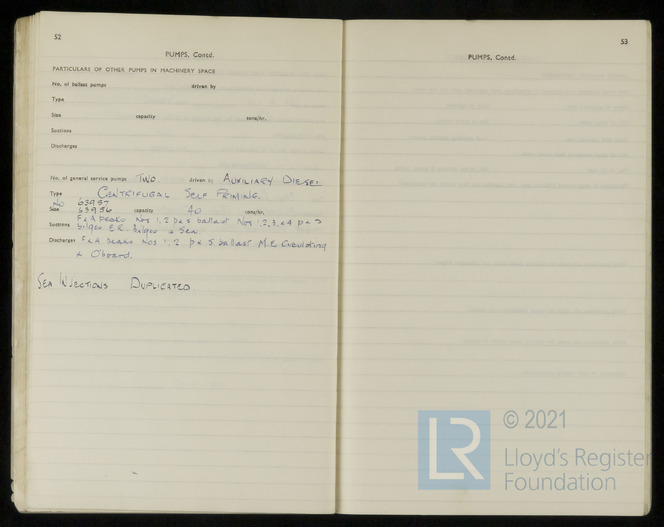 52
PUMPS, Contd.
PARTICULARS OF OTHER PUMPS IN MACHINERY SPACE
No. of ballast pumps driven by
Type
Size capacity tons/hr.
Suctions
Discharges
No. of general service pumps TWO driven by AUXILIARY DIESEL
Type CENTRIFUGAL SELF PRIMING.
No 63957
Size 63956 capacity 40 tons/hr.
F & A PEAKS Nos 1, 2 P & S ballast Nos 1, 2, 3, & 4 P & S
Suctions bilges E.R. bilges & Sea.
Discharges F & A PEAKS Nos 1, 2 P & S ballast M.E. Circulating
& O'board.
SEA INJECTIONS DUPLICATED
53
PUMPS, Contd.
LR
© 2021
Lloyd's Register
Foundation